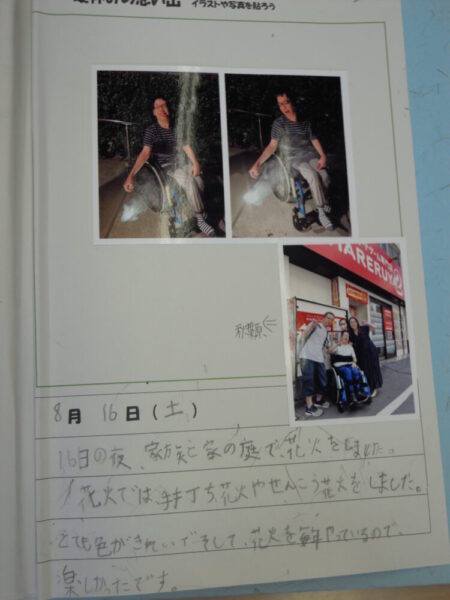 夏休みの思い出 イラストや写真を貼ろう
MARERUYA2
秋葉原、
8月16日(土)
16日の夜、家族と家の庭で、花火をしました。
花火では、手打ち花火やせんこう花火をしました。
とても色がきれいでそして、花火を鮮やっているので、
楽しかったです。